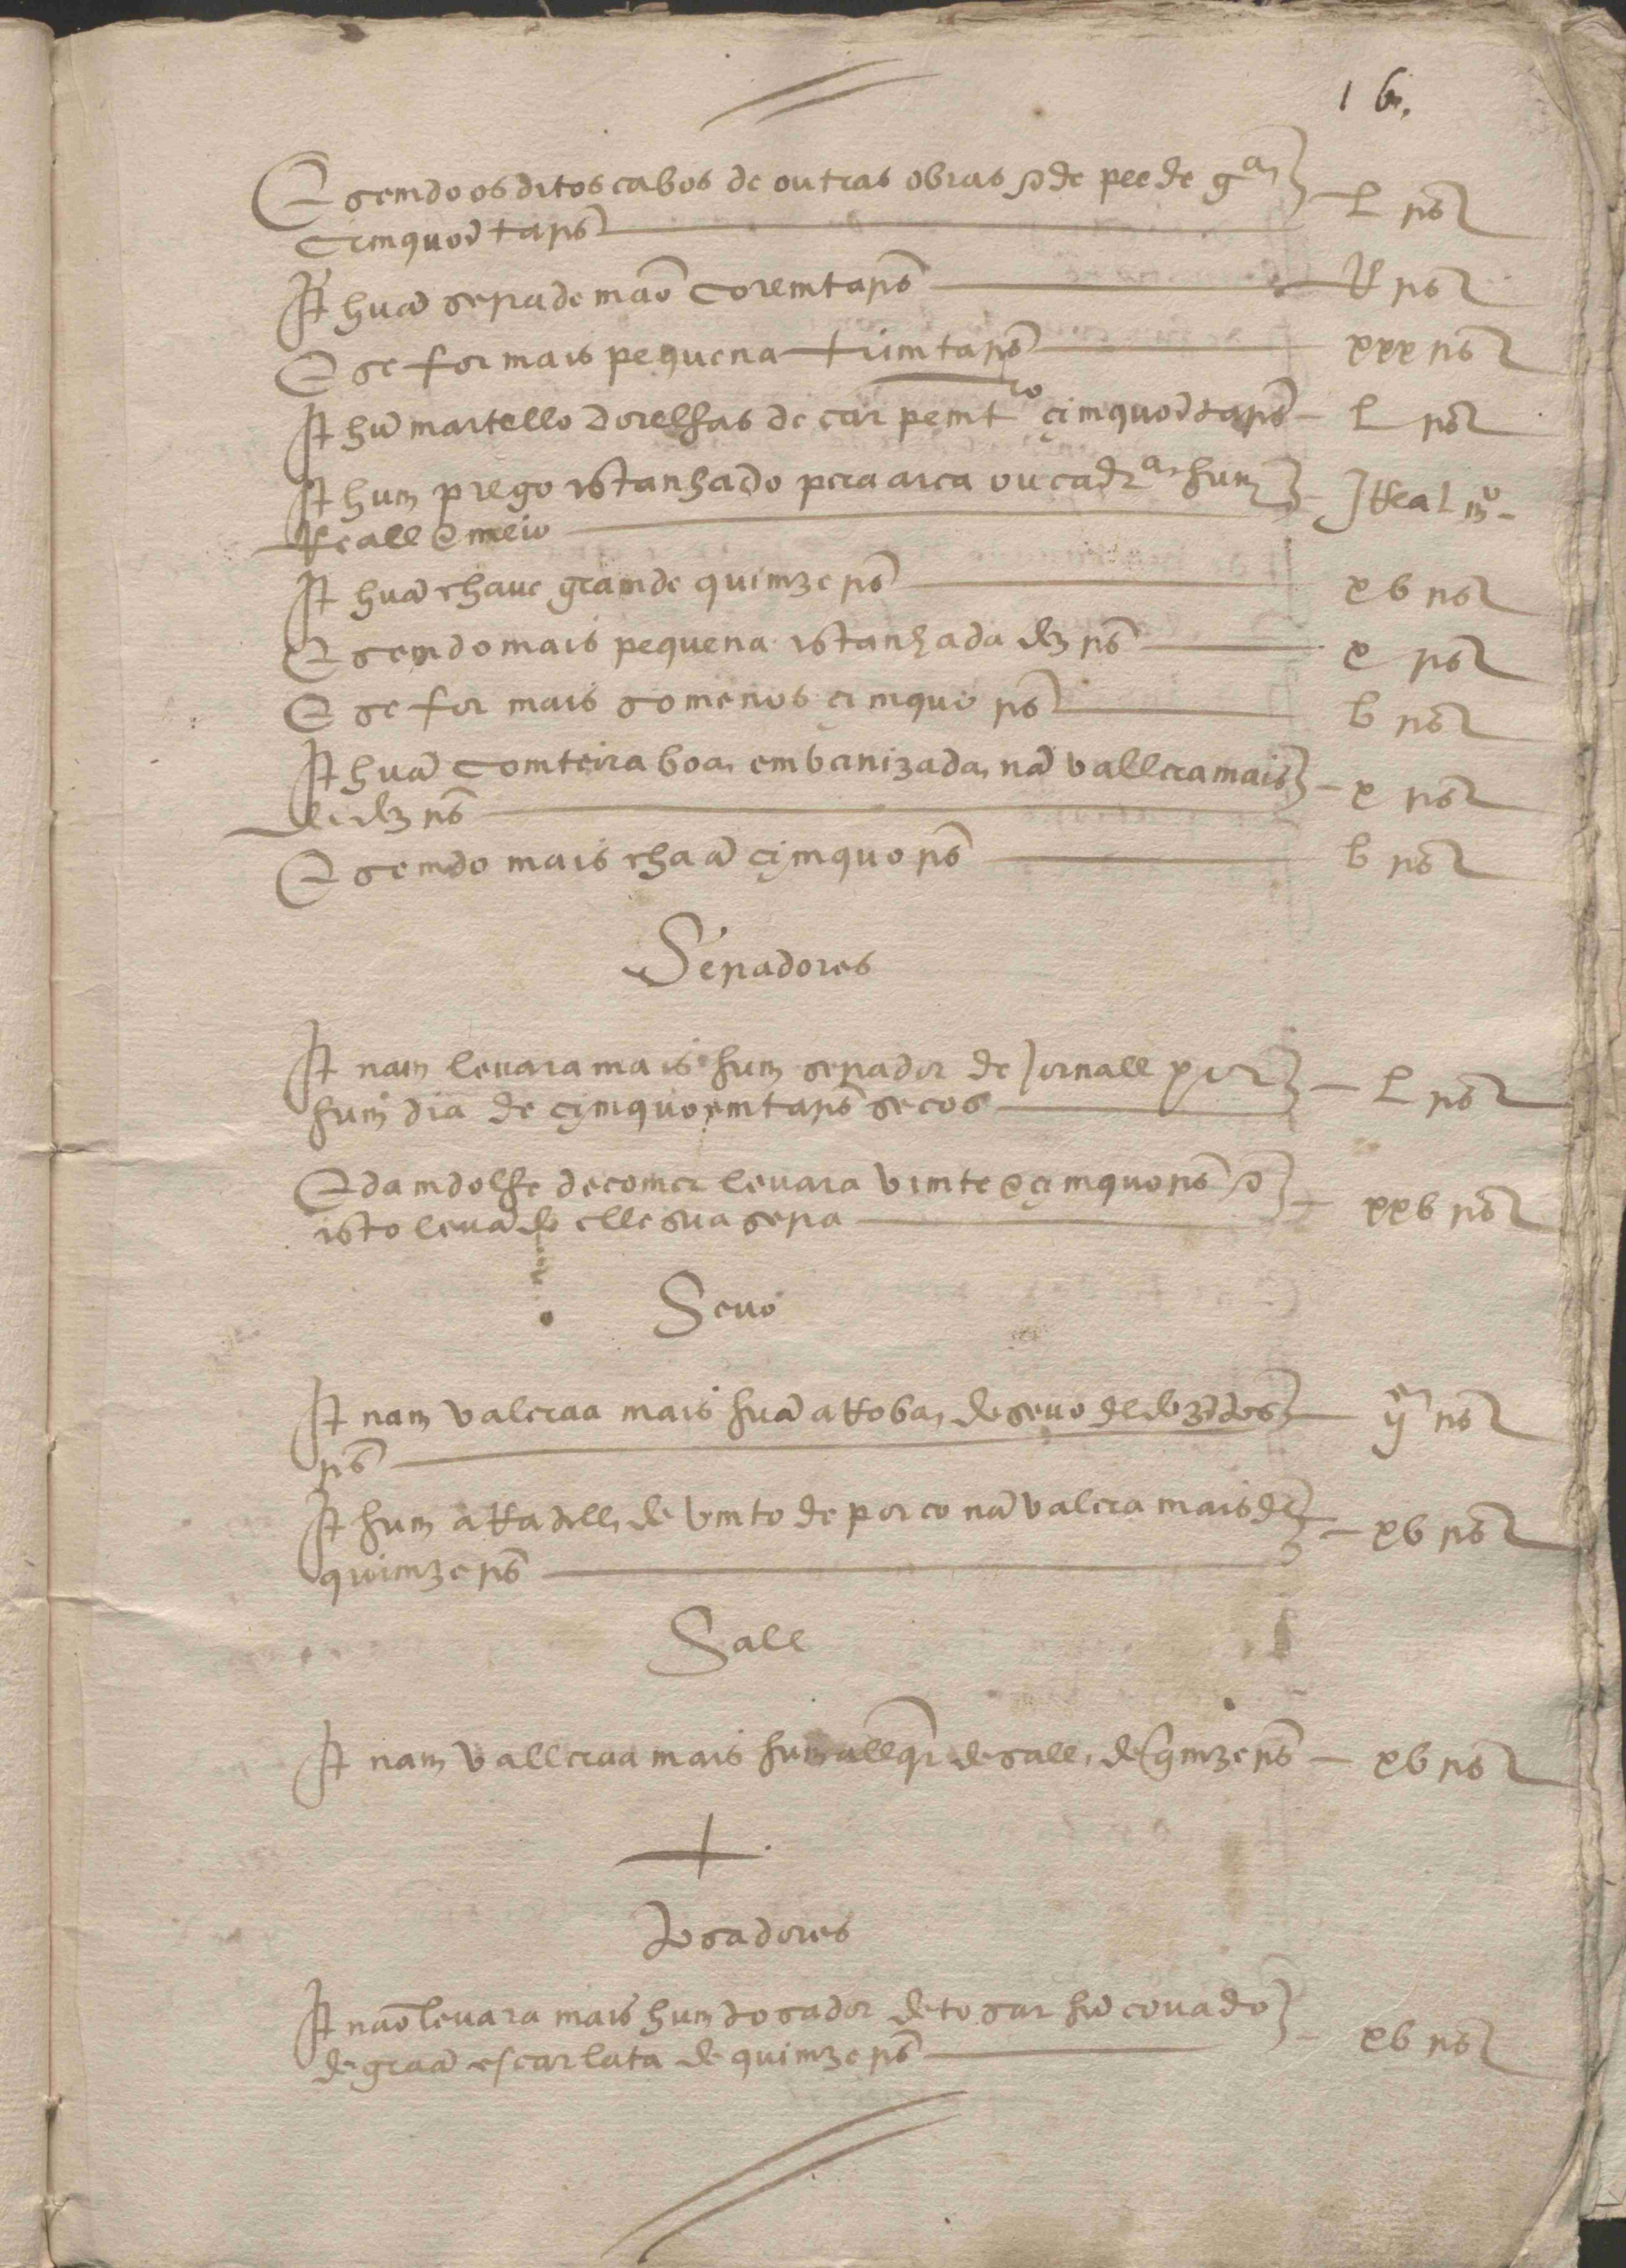 16.
E semdo os ditos cabos de outras obras & de pee de gª L rs
cimquoẽta rs
It huã serra de mão coremta rs R rs
E se for mais pequena trimta rs xxx rs
It hũ martello dorelhas de carpemtro çimquoẽta rs L rs
It hum prego istanhado pera arca ou cadrª hum j Real mº
Reall e meio
It huã chave gramde quimze rs xb rs
E semdo mais pequena istanhada dez rs x rs
E se for mais somenos çimquo rs b rs
It huã comteira boa envernizada nã vallera mais x rs
de dez rs
E semdo mais chaã çimquo rs b rs
Serradores
It nam levara mais hum serrador de Jornall por L rs
hum dia de çimquoemta rs secos
E damdolhe de comer levara vimte e çimquo rs & xxb rs
isto levãdo elle sua serra
Sevo
It nam valeraa mais huã arroba de sevo de dozẽtos ijᶜ rs
rs
It hum arratell de vnto de porco nã valera mais de xb rs
quimze rs
Sall
It nam valleraa mais hum allqr de sall de quimze rs xb rs
Tosadores
It não levara mais hum tosador de tosar hũ covado xb rs
de graã escarlata de quimze rs